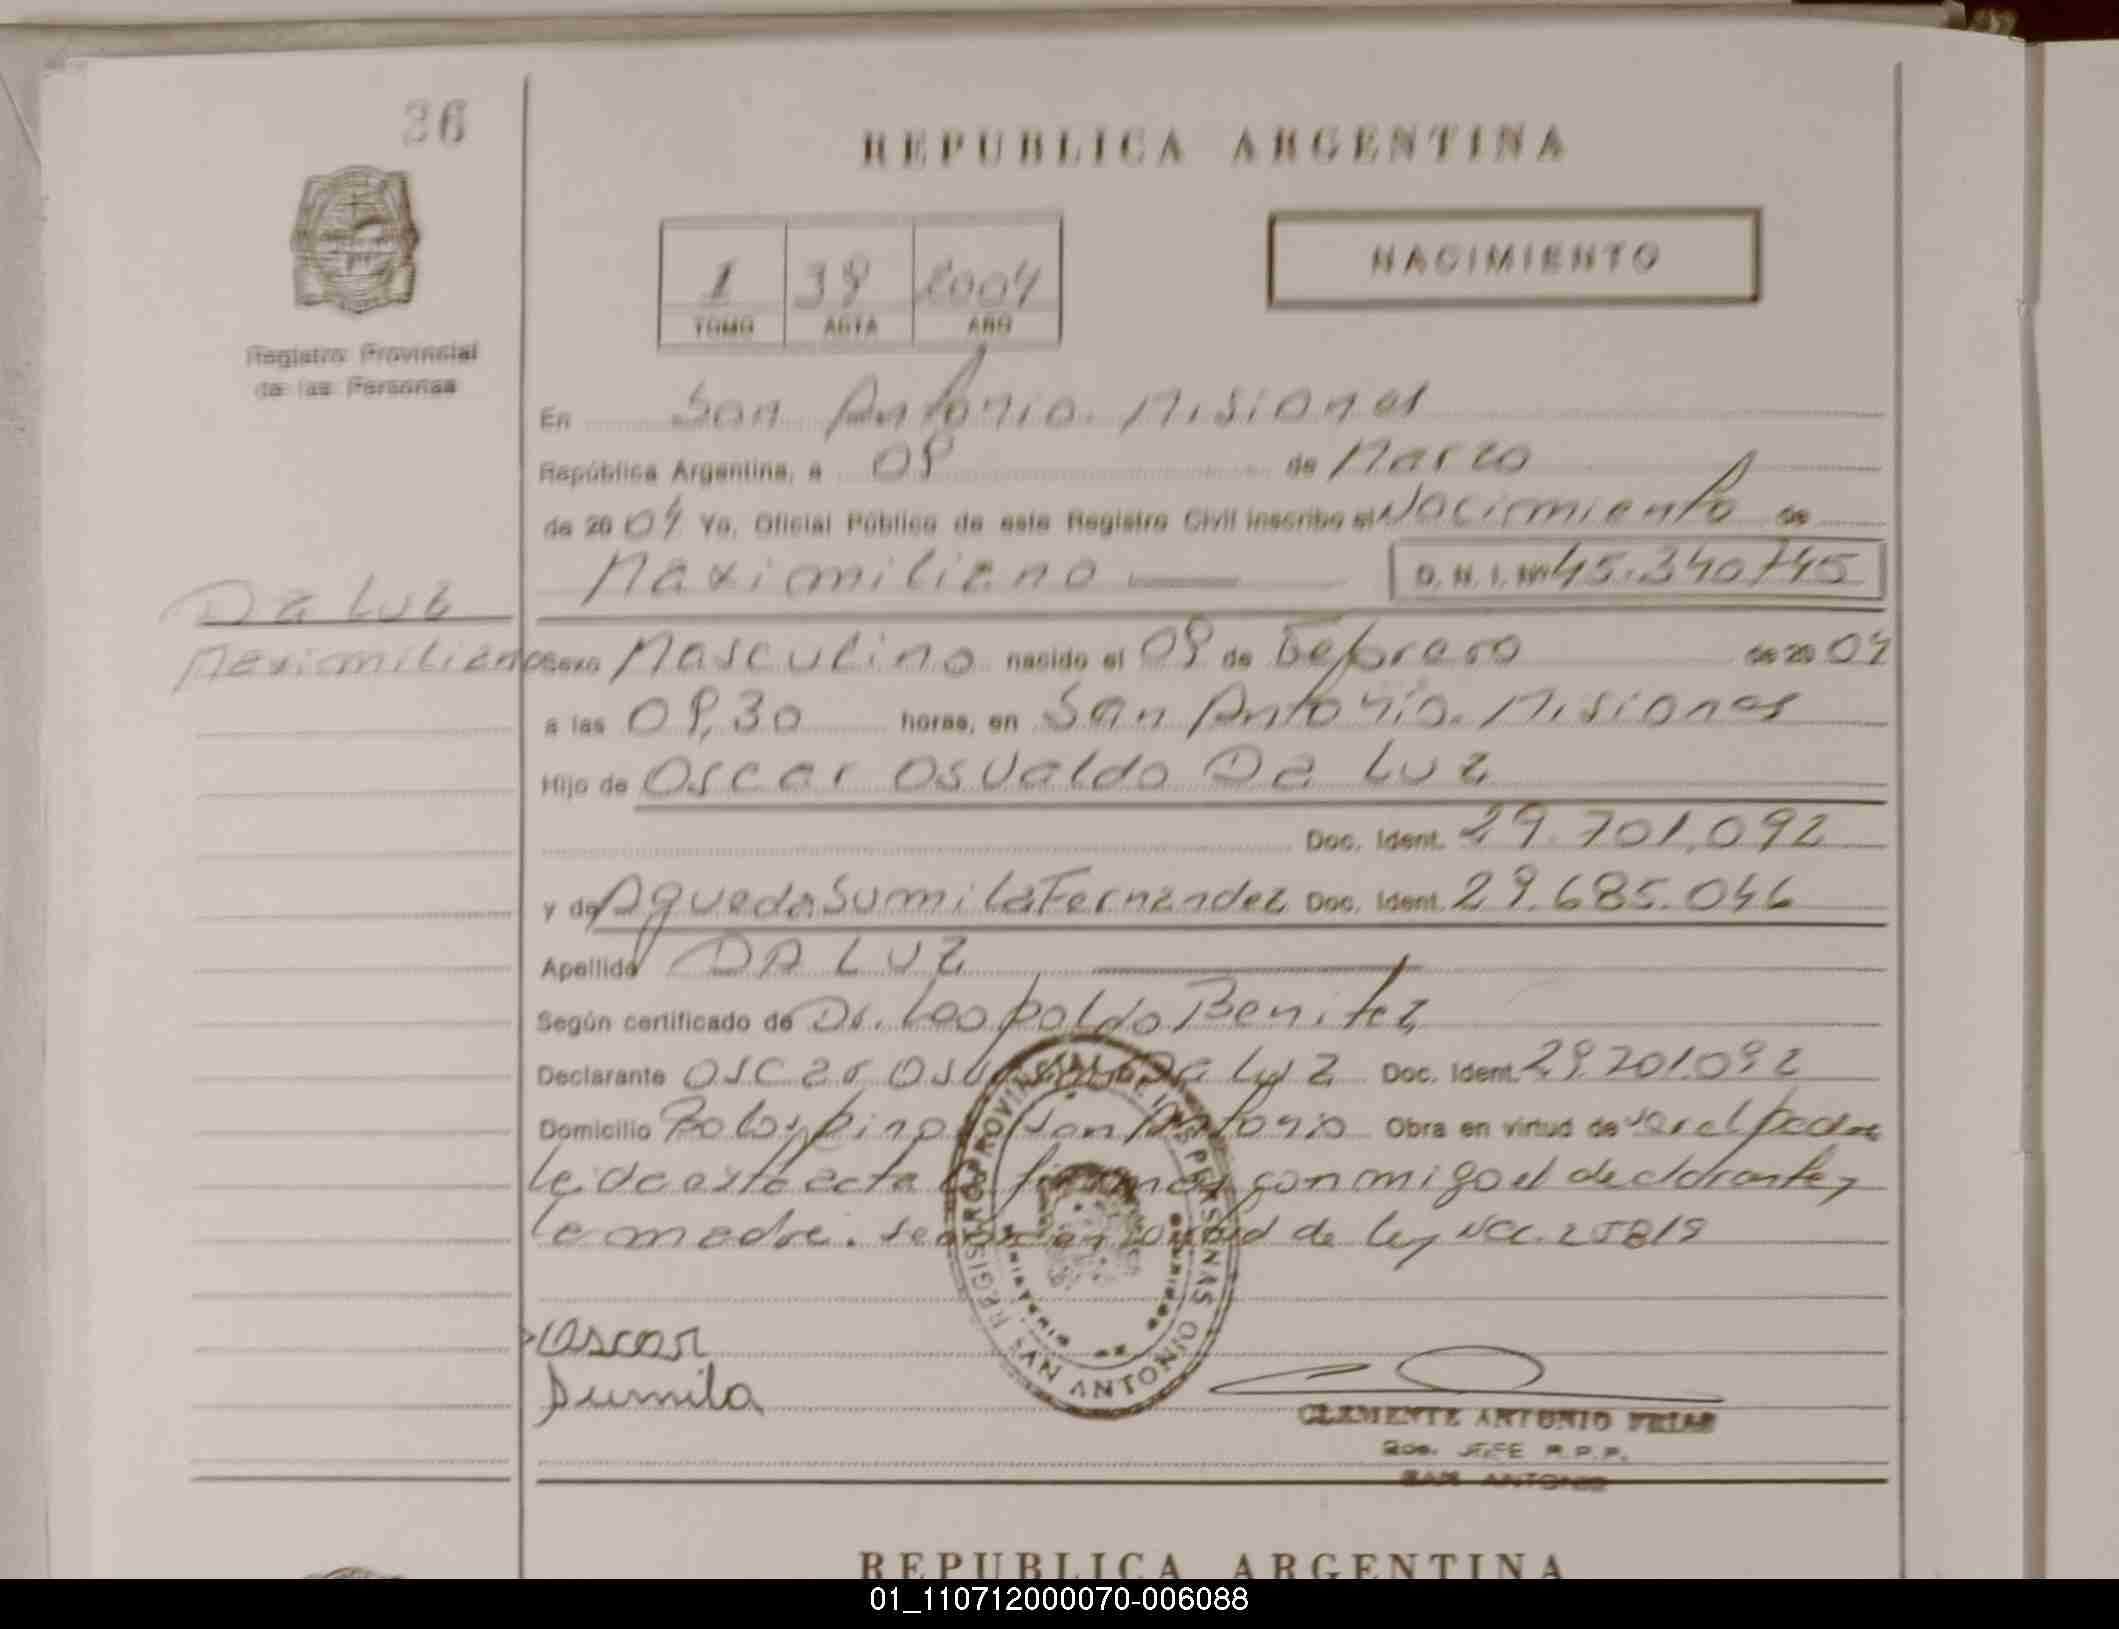 36
REPUBLICA ARGENTINA
1 38 2004
TOMO ACTA AÑO
NACIMIENTO
Registro Provincial
de las Personas
En San Antonio. Misiones
República Argentina, a 08 de Marzo
de 2004 Yo, Oficial Público de este Registro Civil inscribo el Nacimiento de
Maximiliano D. N. I. Nº 45.340745
Da Luz
Maximiliano
Sexo Masculino nacido el 08 de Febrero de 2004
a las 08,30 horas, en San Antonio. Misiones
Hijo de Oscar Osvaldo Da Luz
Doc. Ident. 29.701.092
y de Agueda Sumila Fernandez Doc. Ident. 29.685.046
Apellido DA LUZ
Según certificado de Dr. Leopoldo Benitez
Declarante Oscar Osvaldo Da Luz Doc. Ident. 29.701.092
Domicilio San Antonio Obra en virtud de ser el padre
leida esta acta la firman conmigo el declarante y
la madre. de ley 25819
Oscar
Sumila
REGISTRO PROVINCIAL DE LAS PERSONAS
SAN ANTONIO
CLEMENTE ANTONIO FRIAS
JEFE R.P.P.
SAN ANTONIO
REPUBLICA ARGENTINA
01_110712000070-006088